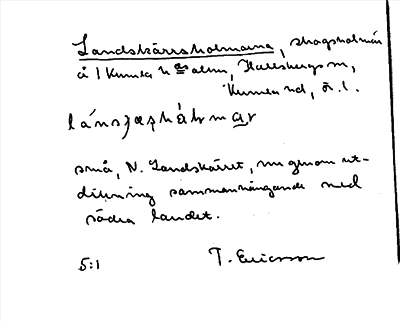 Landskärrsholmarna, skogsholmar
å l Kumla h:s alm, Hallsbergs sn,
Kumla hd, Ö. l.
små, N. Landskärret, nu genom ut-
dikning sammanhängande med
södra landet.
5:1 T. Ericsson